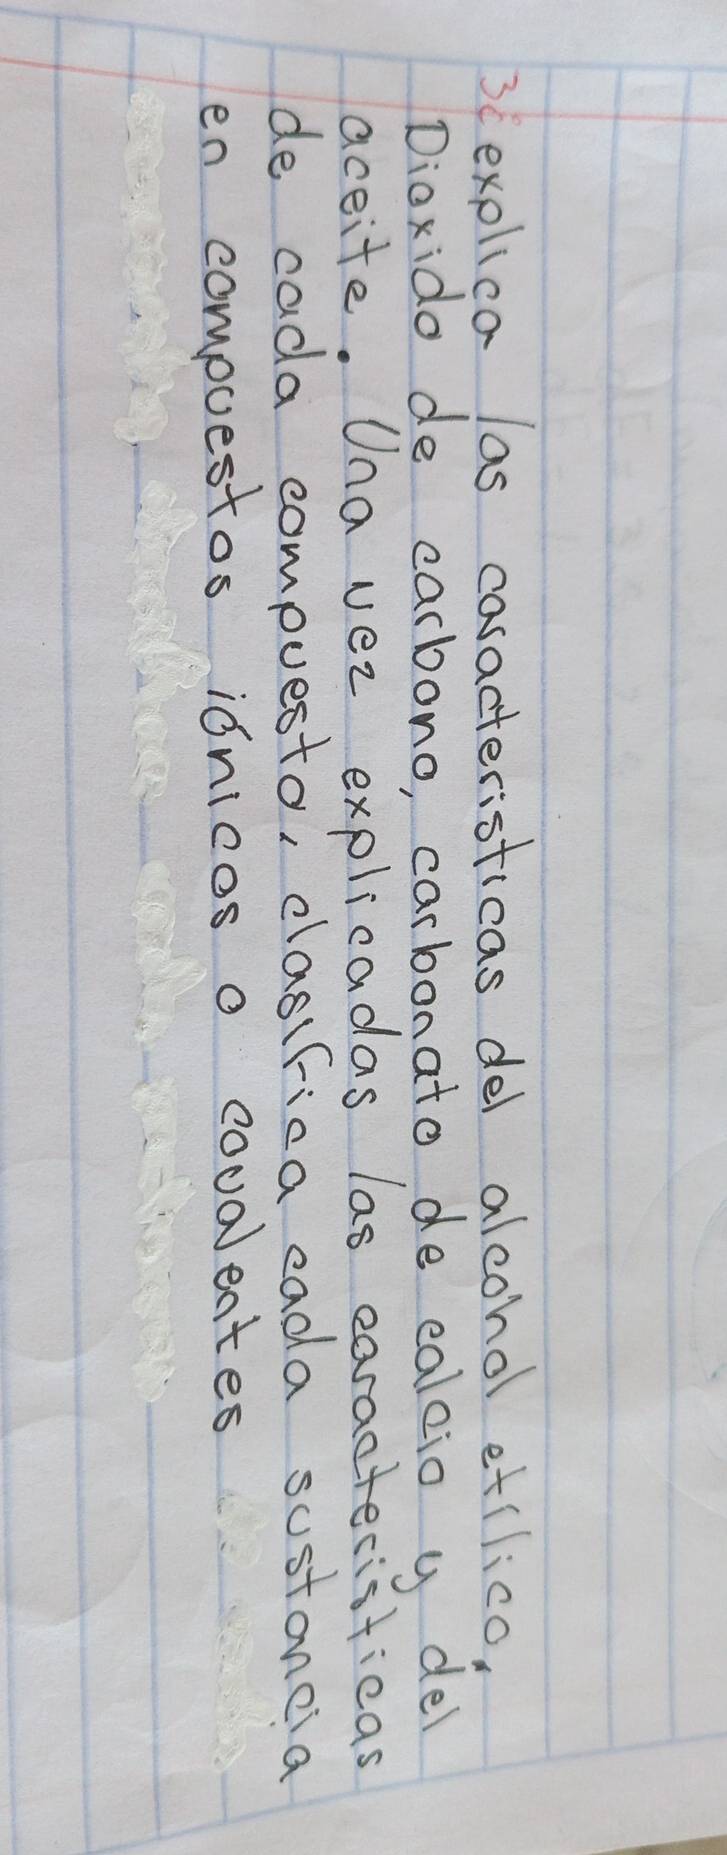 3: explica las caracteristicas del alcohol etílico,
Dioxido de carbono, carbonato de calcio y del
aceite. Una vez explicadas las caracteristicas
de cada compuesto, clasifica cada sustancia
en compuestos iónicos o covalentes